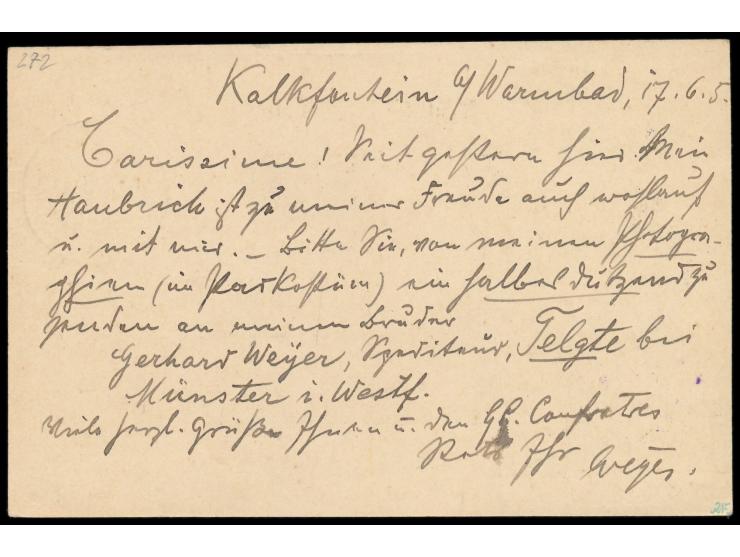 272
Kalkfontein b/Warmbad, 17.6.5.
Carissime! Seit gestern hier. Mein
Haubrich ist zu meiner Freude auch wohlauf
u. mit mir. – Bitte Sie, von meinen Photogra-
phien (im Paskostüm) ein halbes dutzend zu
senden an meinen Bruder
Gerhard Weyer, Spediteur, Telgte bei
Münster i. Westf.
Viele herzl. Grüße Ihnen u. den GG. Confratres
Stets Ihr Weyer.